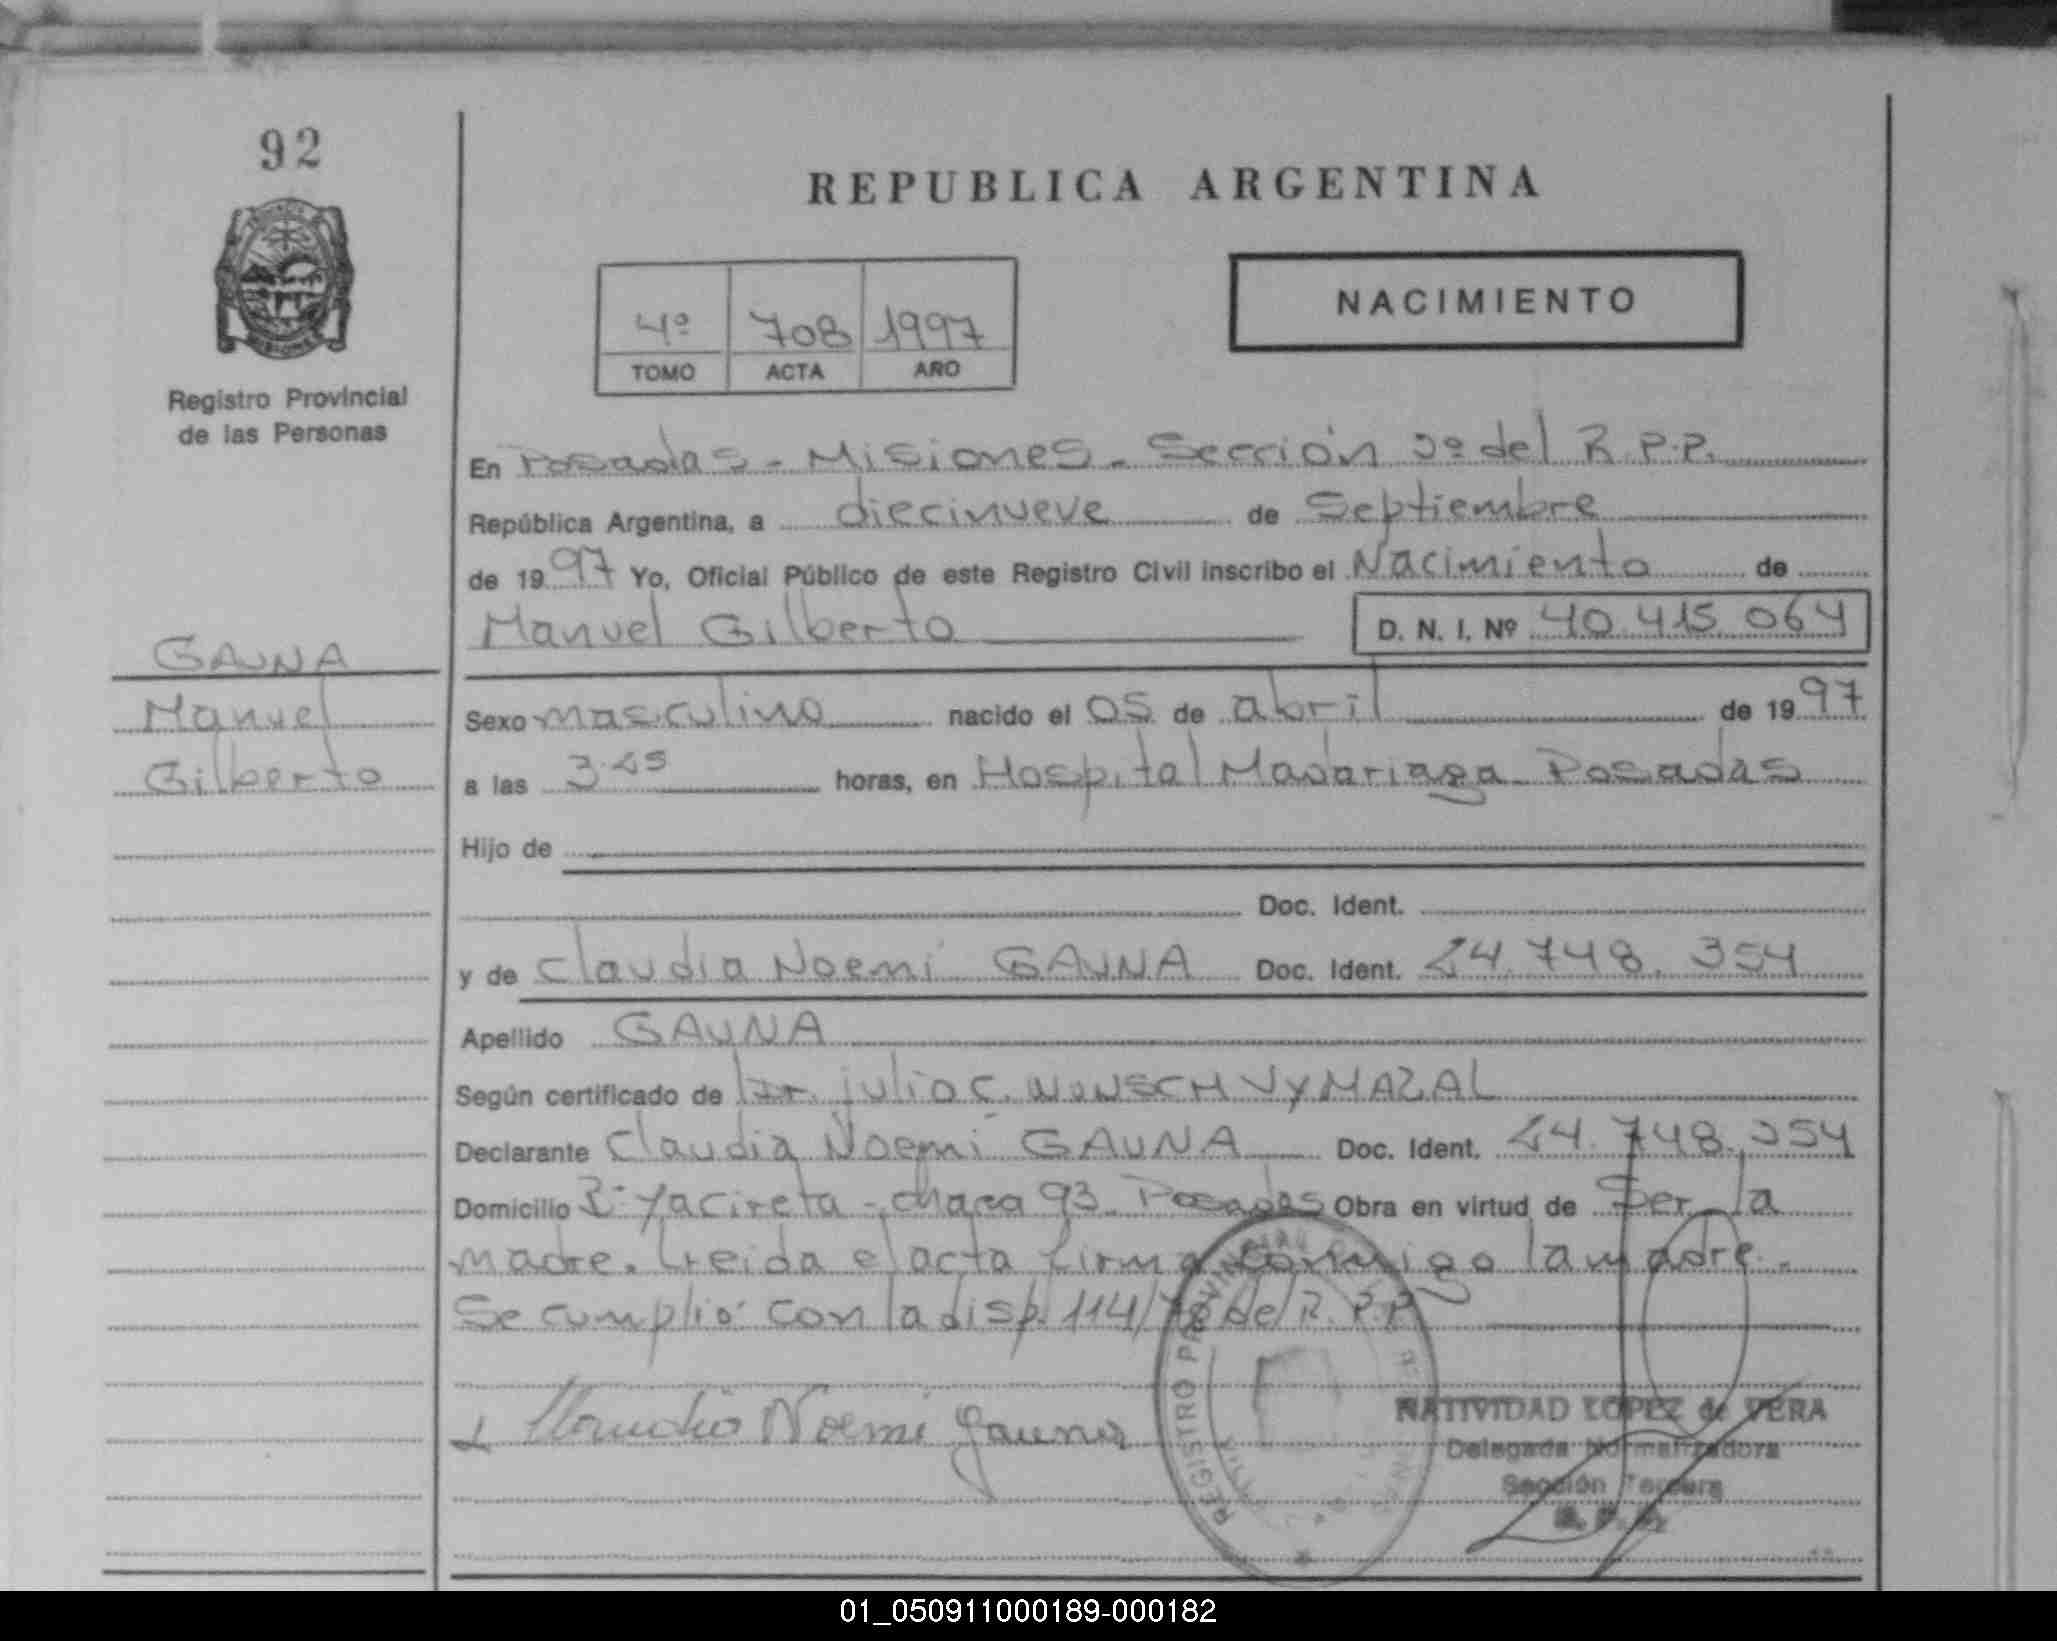 92
REPUBLICA ARGENTINA
NACIMIENTO
4º 708 1997
TOMO ACTA AÑO
Registro Provincial
de las Personas
En Posadas - Misiones. Sección 3º del R.P.P.
República Argentina, a diecinueve de Septiembre
de 1997 Yo, Oficial Público de este Registro Civil inscribo el Nacimiento de
Manuel Gilberto D. N. I. Nº 40.415.064
GAUNA
Manuel
Gilberto
Sexo masculino nacido el 05 de abril de 1997
a las 3.25 horas, en Hospital Madariaga Posadas
Hijo de
Doc. Ident.
y de Claudia Noemí GAUNA Doc. Ident. 24.748.354
Apellido GAUNA
Según certificado de Dr. julio C. WUNSCH VYMAZAL
Declarante Claudia Noemí GAUNA Doc. Ident. 24.748.354
Domicilio Bº Yacireta - chacra 93. Posadas Obra en virtud de Ser la
madre. Leida el acta firma conmigo la madre.
Se cumplió con la disp. 114/78 del R.P.P.
Claudia Noemi Gauna
REGISTRO PROVINCIAL
NATIVIDAD LOPEZ de VERA
Delegada Normalizadora
Sección Tercera
R. P. P.
01_050911000189-000182